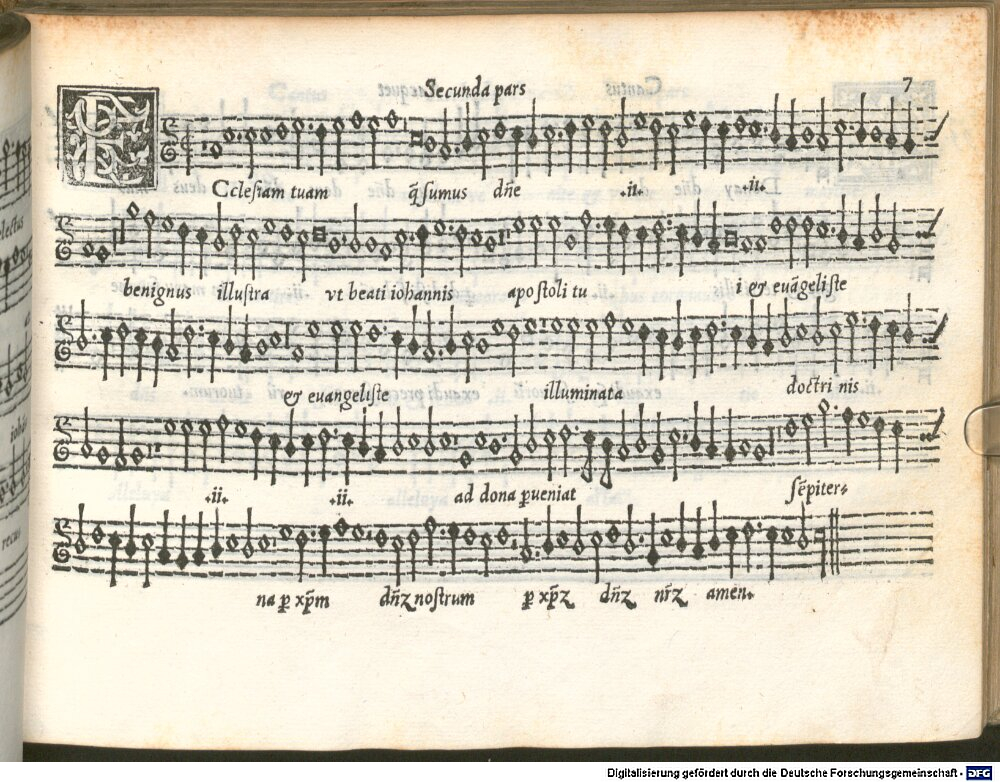 Secunda pars
7
ECclesiam tuam q̃sumus dñe .ii. .ii.
benignus illustra vt beati iohannis apostoli tu i & euãgeliste
& euangeliste illuminata doctri nis
.ii. .ii. ad dona ꝑueniat sẽpiter-
na ꝑ xp̃m dñꝫ nostrum ꝑ xp̃ꝫ dñꝫ nr̃ꝫ amen.
Digitalisierung gefördert durch die Deutsche Forschungsgemeinschaft - DFG